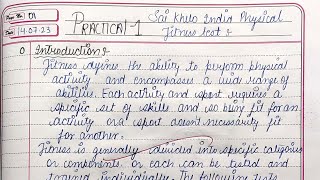 Page No. 01
Date 14.07.23
PRACTICAL-1
Sai Khelo India Physical
Fitness test :
0. Introduction :
Fitness defines the ability to perform physical
activity and encompasses a wide range of
abilities. Each activity and sport requires a
specific set of skills and so being fit for an
activity or a sport doesn't necessarily fit
for another.
Fitness is generally divided into specific categories
or components. Or each can be tested and
trained individually. The following tests